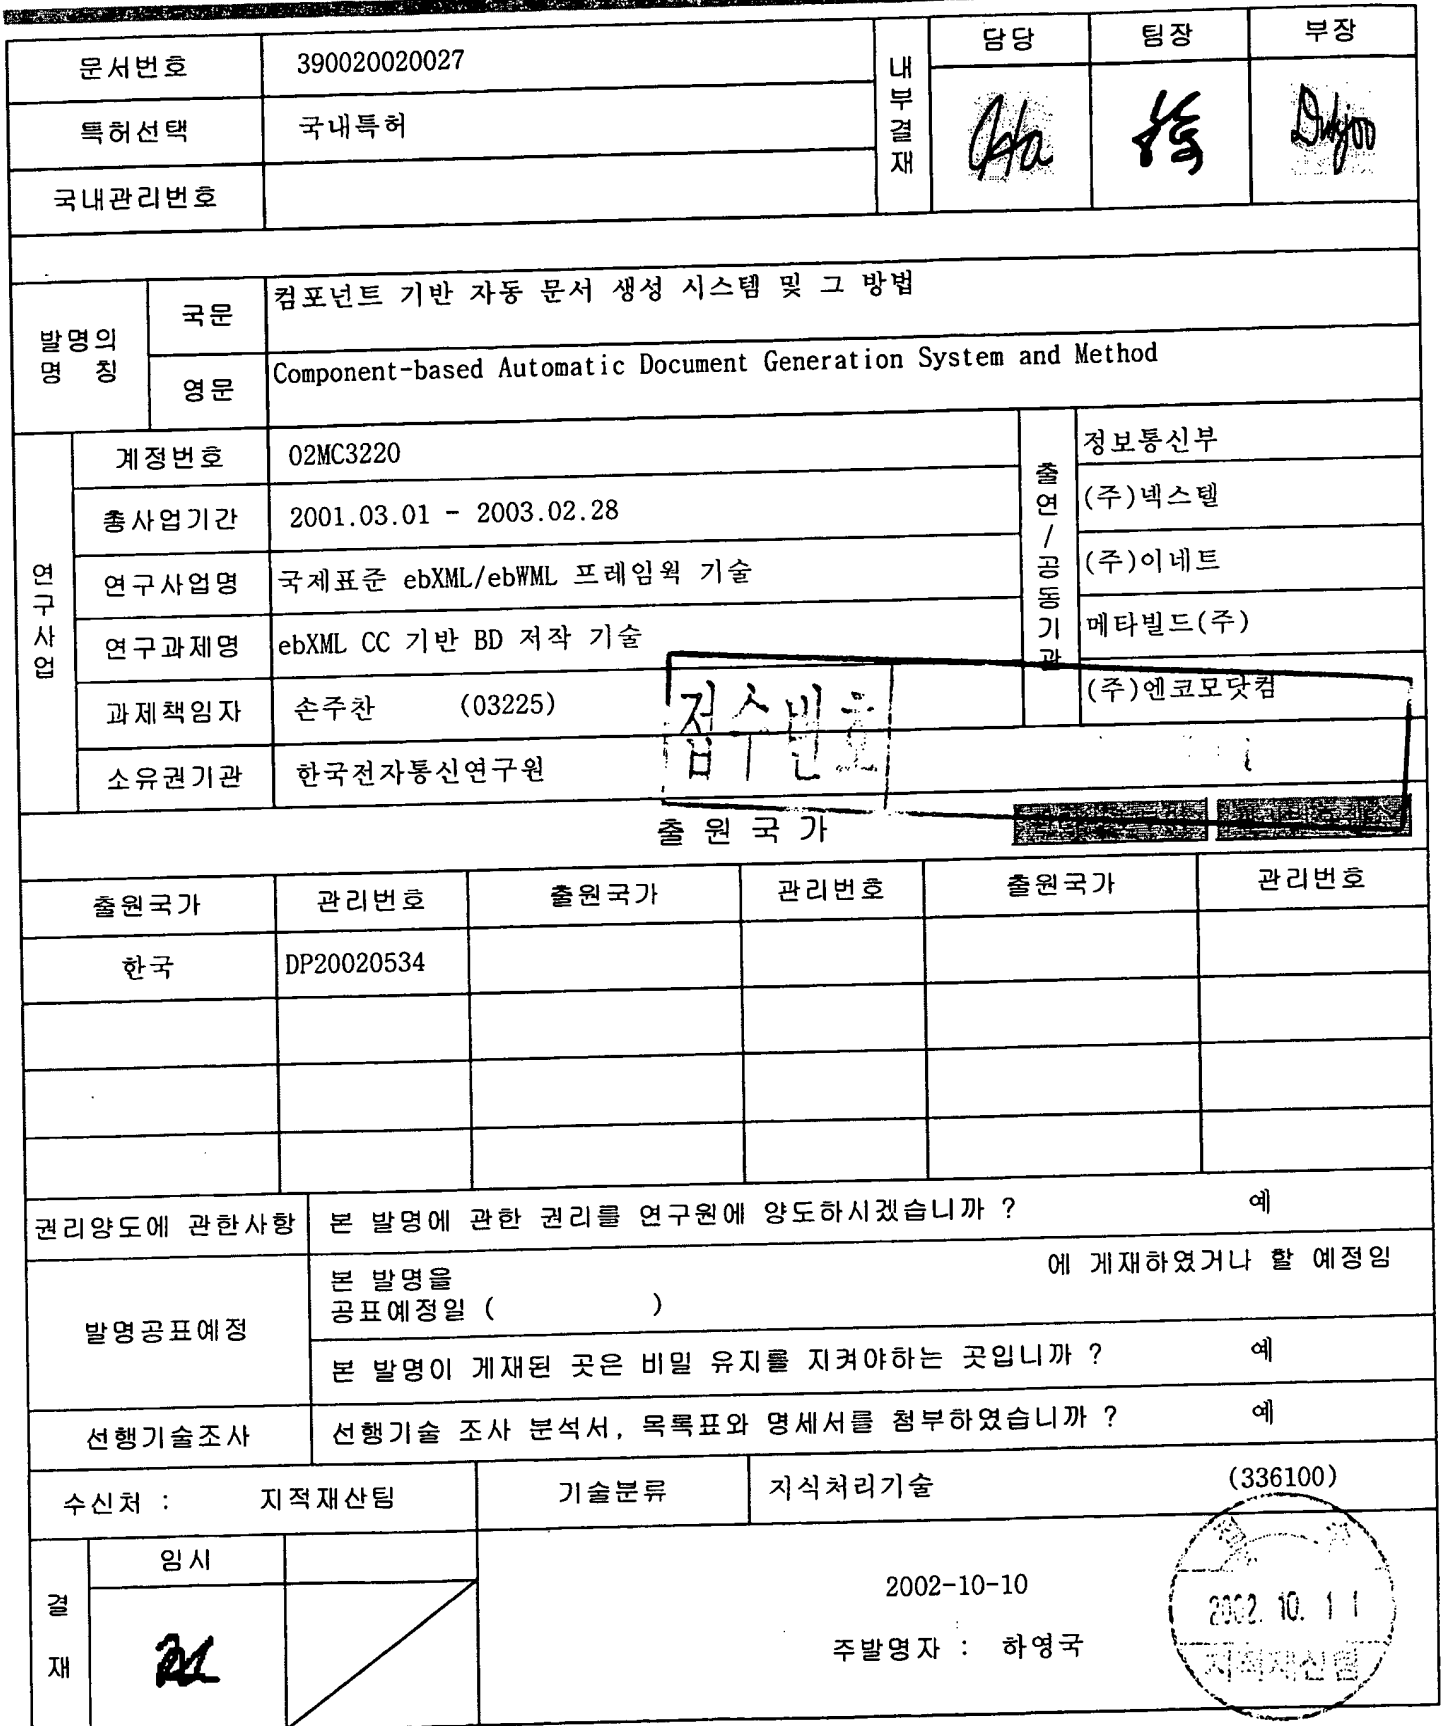 문서번호 390020020027
내부결재 담당 팀장 부장
특허선택 국내특허
국내관리번호
발명의 명 칭
국문 컴포넌트 기반 자동 문서 생성 시스템 및 그 방법
영문 Component-based Automatic Document Generation System and Method
연구사업
계정번호 02MC3220
총사업기간 2001.03.01 - 2003.02.28
연구사업명 국제표준 ebXML/ebWML 프레임웍 기술
연구과제명 ebXML CC 기반 BD 저작 기술
과제책임자 손주찬 (03225)
소유권기관 한국전자통신연구원
출연/공동기관
정보통신부
(주)넥스텔
(주)이네트
메타빌드(주)
(주)엔코모닷컴
접수번호
출원국가
출원국가 관리번호 출원국가 관리번호 출원국가 관리번호
한국 DP20020534
권리양도에 관한사항 본 발명에 관한 권리를 연구원에 양도하시겠습니까 ? 예
발명공표예정
본 발명을 에 게재하였거나 할 예정임
공표예정일 ( )
본 발명이 게재된 곳은 비밀 유지를 지켜야하는 곳입니까 ? 예
선행기술조사 선행기술 조사 분석서, 목록표와 명세서를 첨부하였습니까 ? 예
수신처 : 지적재산팀 기술분류 지식처리기술 (336100)
결재 임시
2002-10-10
주발명자 : 하영국
2002. 10. 11
지적재산팀